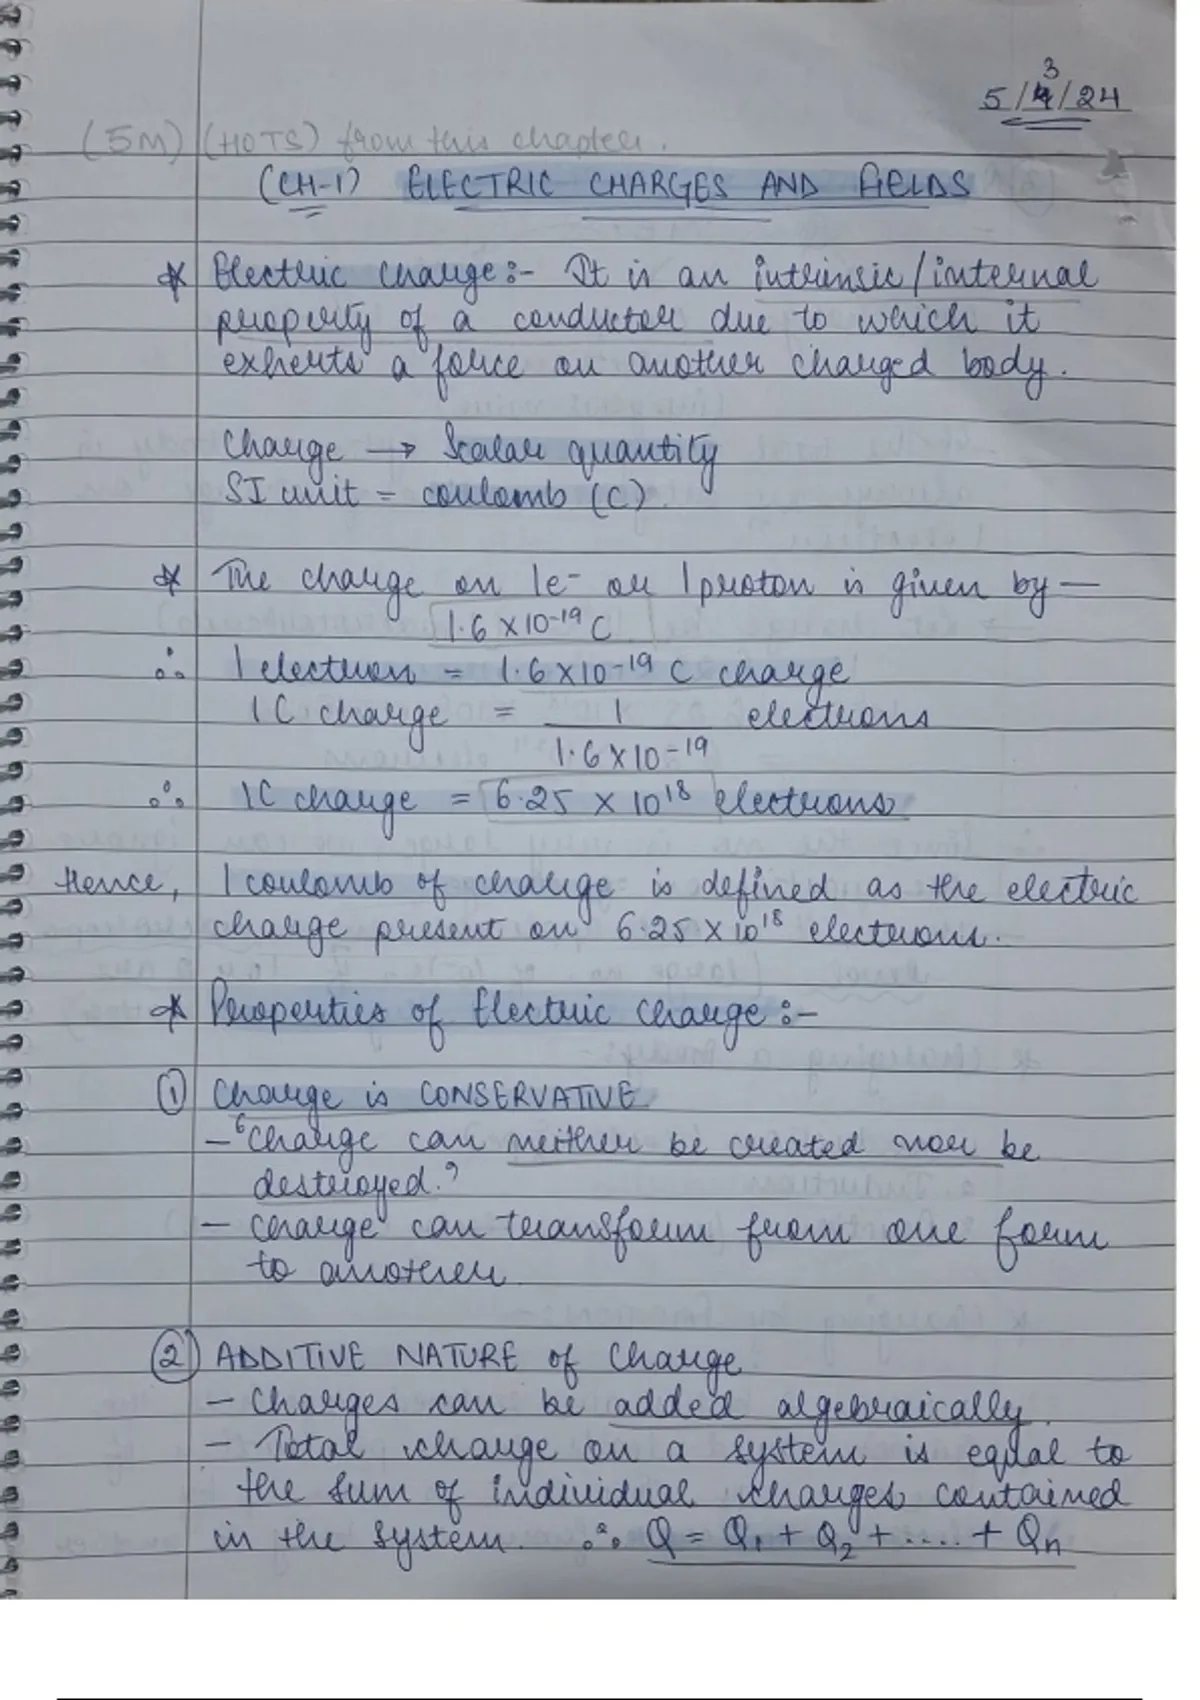 5/3/24
(5M) (HOTS) from this chapter.
(CH-1) ELECTRIC CHARGES AND FIELDS
* Electric charge :- It is an intrinsic/internal
property of a conductor due to which it
exherts a force on another charged body.
Charge → Scalar quantity
SI unit = coulomb (C).
* The charge on 1e⁻ or 1 proton is given by —
1.6 × 10⁻¹⁹ C
∴ 1 electron = 1.6 × 10⁻¹⁹ C charge
1C charge = 1 electrons
1.6 × 10⁻¹⁹
∴ 1C charge = 6.25 × 10¹⁸ electrons
Hence, 1 coulomb of charge is defined as the electric
charge present on 6.25 × 10¹⁸ electrons.
* Properties of Electric charge :-
① Charge is CONSERVATIVE
- 'Charge can neither be created nor be
destroyed.'
- Charge can transform from one form
to another
② ADDITIVE NATURE of Charge
- Charges can be added algebraically.
- Total charge on a system is equal to
the sum of individual charges contained
in the system. ∴ Q = Q₁ + Q₂ + .... + Qn